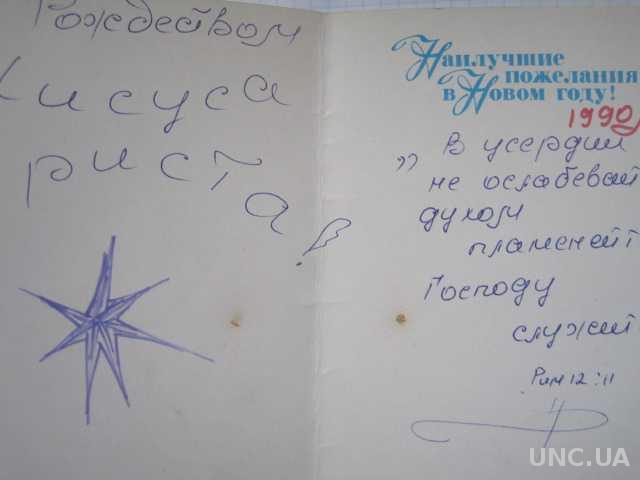 Рождеством
Иисуса
риста!
Наилучшие
пожелания
в Новом году!
1990
„В усердии
не ослабевай
духом
пламенейт
Господу
служит
Рим 12:11
UNC.UA